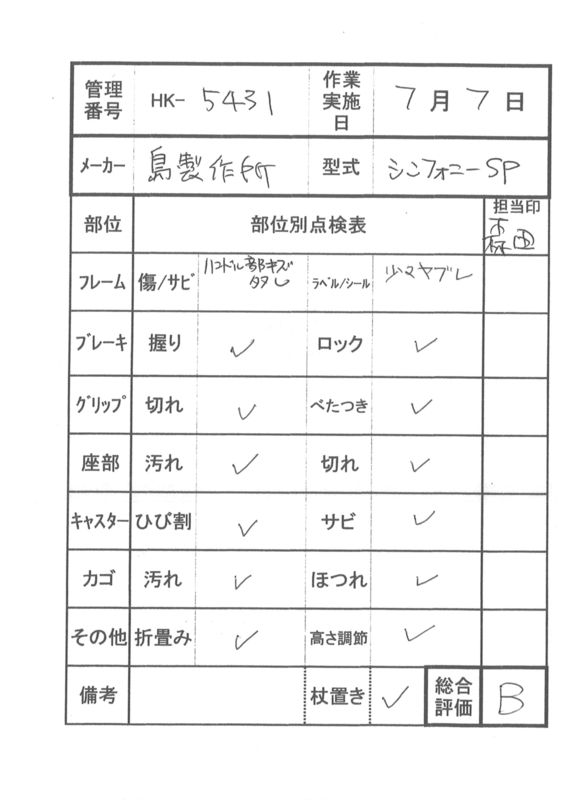 管理番号 HK- 5431 作業実施日 7月7日
メーカー 島製作所 型式 シンフォニーSP
部位 部位別点検表 担当印 森田
フレーム 傷/サビ ハンドル部キズ ラベル/シール 少々ヤブレ
ブレーキ 握り ✓ ロック ✓
グリップ 切れ ✓ べたつき ✓
座部 汚れ ✓ 切れ ✓
キャスター ひび割 ✓ サビ ✓
カゴ 汚れ ✓ ほつれ ✓
その他 折畳み ✓ 高さ調節 ✓
備考 杖置き ✓ 総合評価 B